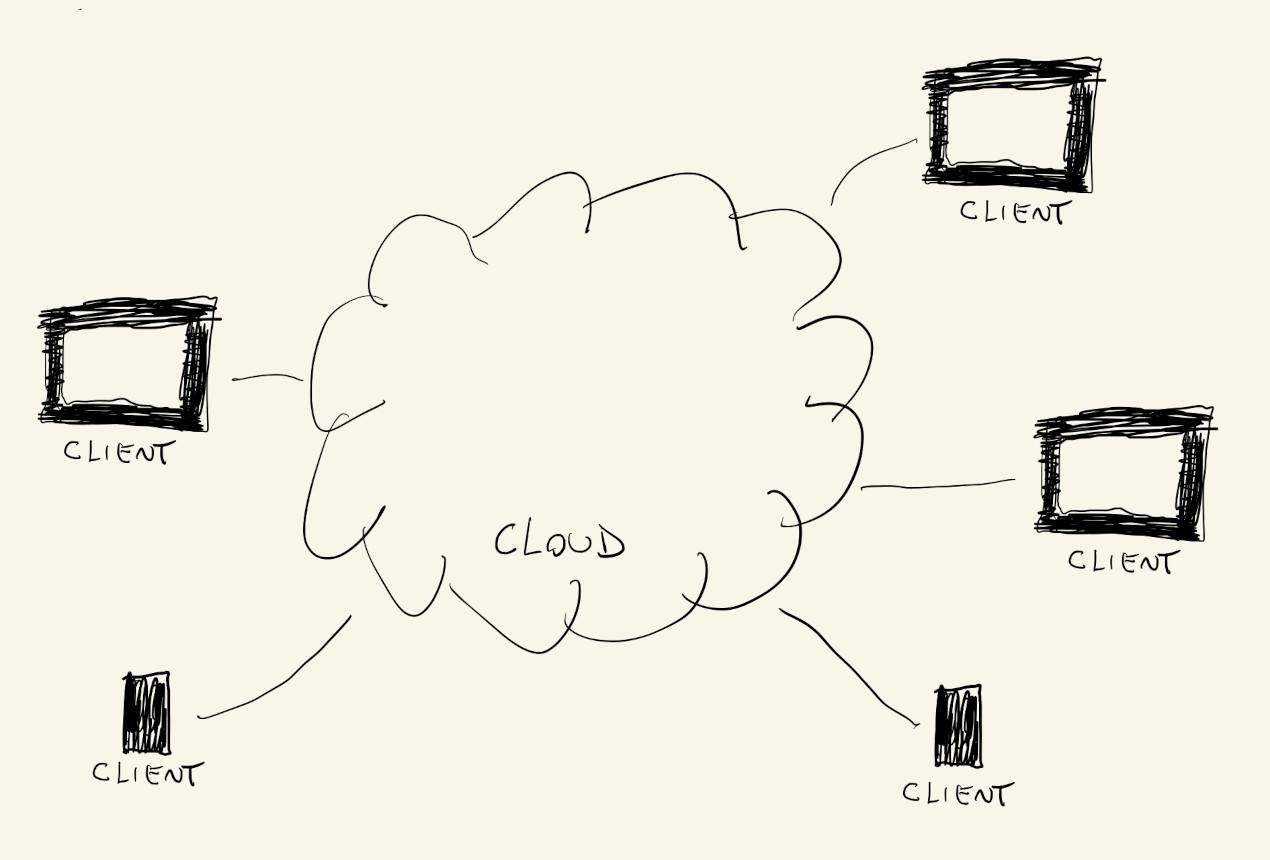 CLIENT
CLIENT
CLOUD
CLIENT
CLIENT
CLIENT